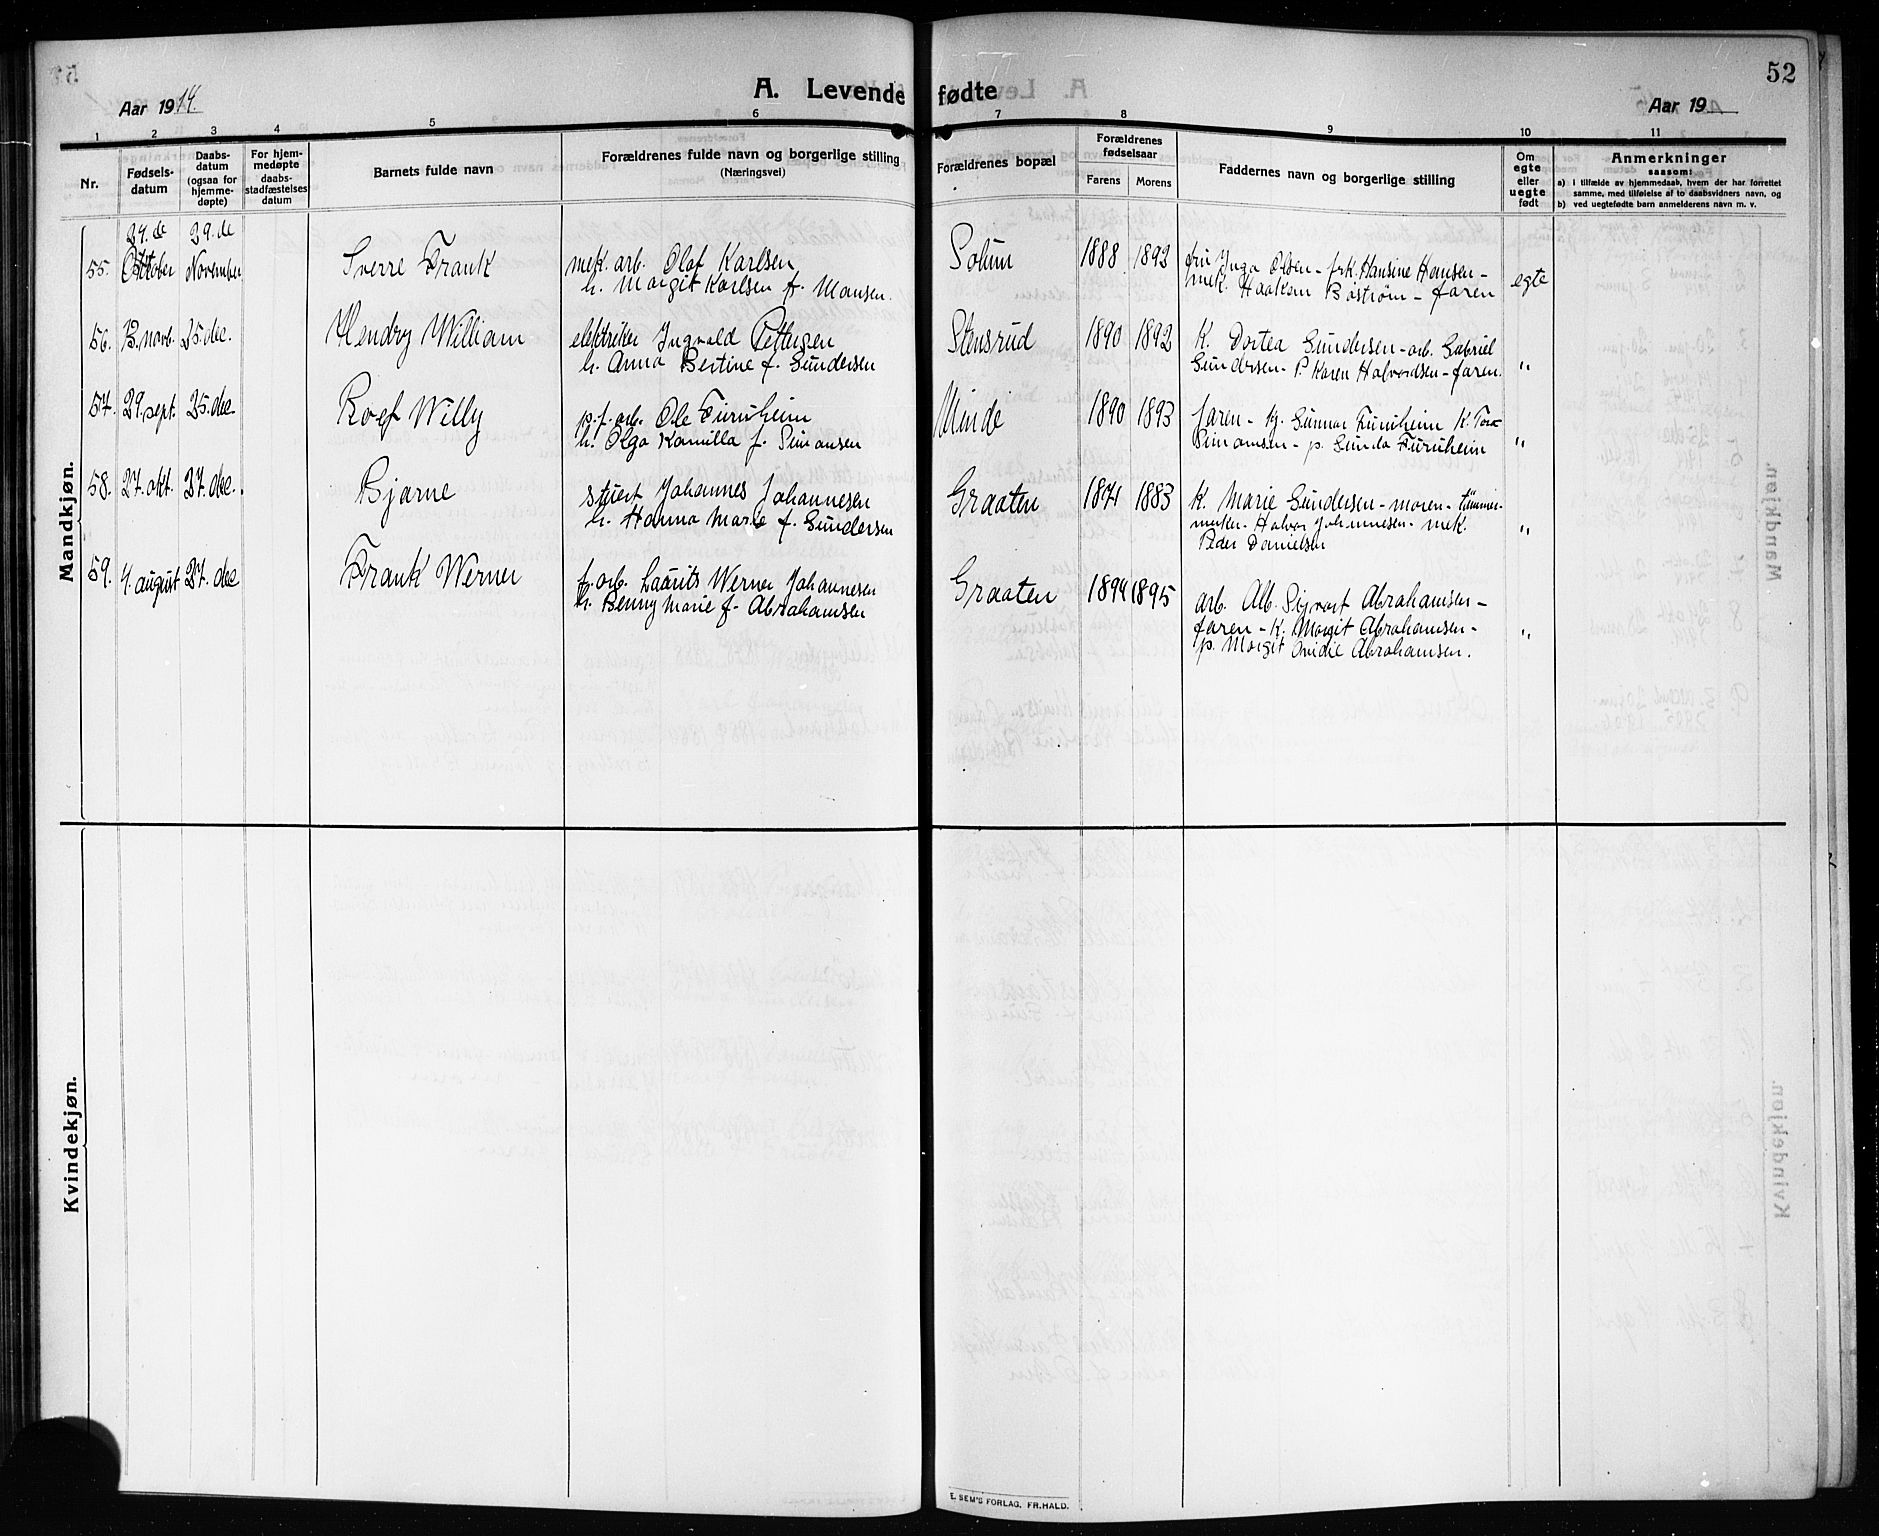 52
A. Levende fødte
Aar 1914.
Aar 19
1 2 3 4 5 6 7 8 9 10 11
Nr.
Fødsels-
datum
Daabs-
datum
(ogsaa for
hjemme-
døpte)
For hjem-
medøpte
daabs-
stadfæstelses
datum
Barnets fulde navn
Forældrenes fulde navn og borgerlige stilling
(Næringsvei)
Forældrenes bopæl
Forældrenes
fødselsaar
Farens Morens
Faddernes navn og borgerlige stilling
Om
egte
eller
uegte
født
Anmerkninger
saasom:
a) I tilfælde av hjemmedaab, hvem der har forrettet
samme, med tilføielse af to daabsvidners navn, og
b) ved uegtefødte barn anmelderens navn m. v.
Mandkjøn.
55. 24.de Oktober 29.de November Sverre Frank
mek. arb. Olaf Karlsen
h. Margit Karlsen f. Hansen.
Solum 1888 1892
fru Inga Olsen - frk. Hansine Hansen -
mek. Haakon Boström - faren
egte
56. 13. novb. 25. dec. Hendry William
elektriker Ingvald Pettersen
h. Anna Bertine f. Gundersen
Stensrud 1890 1892
K. Dortea Gundersen - arb. Gabriel
Gundersen - P. Karen Halvordsen - faren.
"
57. 29. sept. 25. dec. Rolf Willy
p. f. arb. Ole Furuheim
h. Olga Kamilla f. Simonsen
Minde 1890 1893
faren - Kg. Gunnar Furuheim K. Tora
Simonsen - p. Gunda Furuheim
"
58. 27. okt. 27. dec. Bjarne
stuert Johannes Johannesen
h. Hanna Marie f. Gundersen
Graaten 1874 1883
K. Marie Gundersen - moren - tømmer-
merker Halvor Johannesen - mek.
Peder Danielsen
"
59. 4. august 27. dec Frank Werner
f. arb. Laurits Werner Johannesen
h. Benny Marie f. Abrahamsen
Graaten 1894 1895
arb. Alb. Sigvart Abrahamsen -
faren - K. Margit Abrahamsen -
p. Margit Ovidie Abrahamsen.
"
Kvindekjøn.
E. SEM'S FORLAG, FR.HALD.